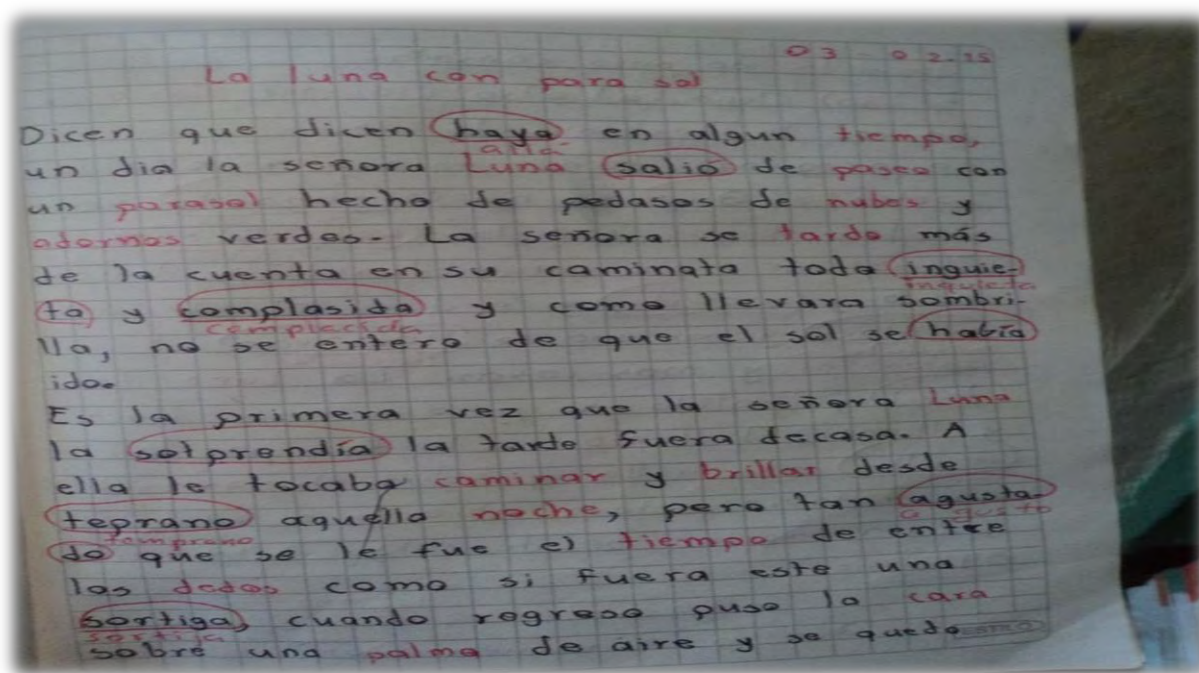 03 02.15
La luna con para sol
Dicen que dicen haya en algun tiempo,
alla
un dia la señora Luna salio de paseo con
un parasol hecho de pedasos de nubes y
adornos verdes. La señora se tardo más
de la cuenta en su caminata toda inguie-
inquieta
ta y complasida y como llevara sombri-
complacida
lla, no se entero de que el sol se había
ido.
Es la primera vez que la señora Luna
la sotprendía la tarde fuera decasa. A
ella le tocaba caminar y brillar desde
teprano aquella noche, pero tan agusta-
temprano a gusto
do que se le fue el tiempo de entre
los dedos como si fuera este una
sortiga, cuando regreso puso la cara
sortija
sobre una palma de aire y se quedo